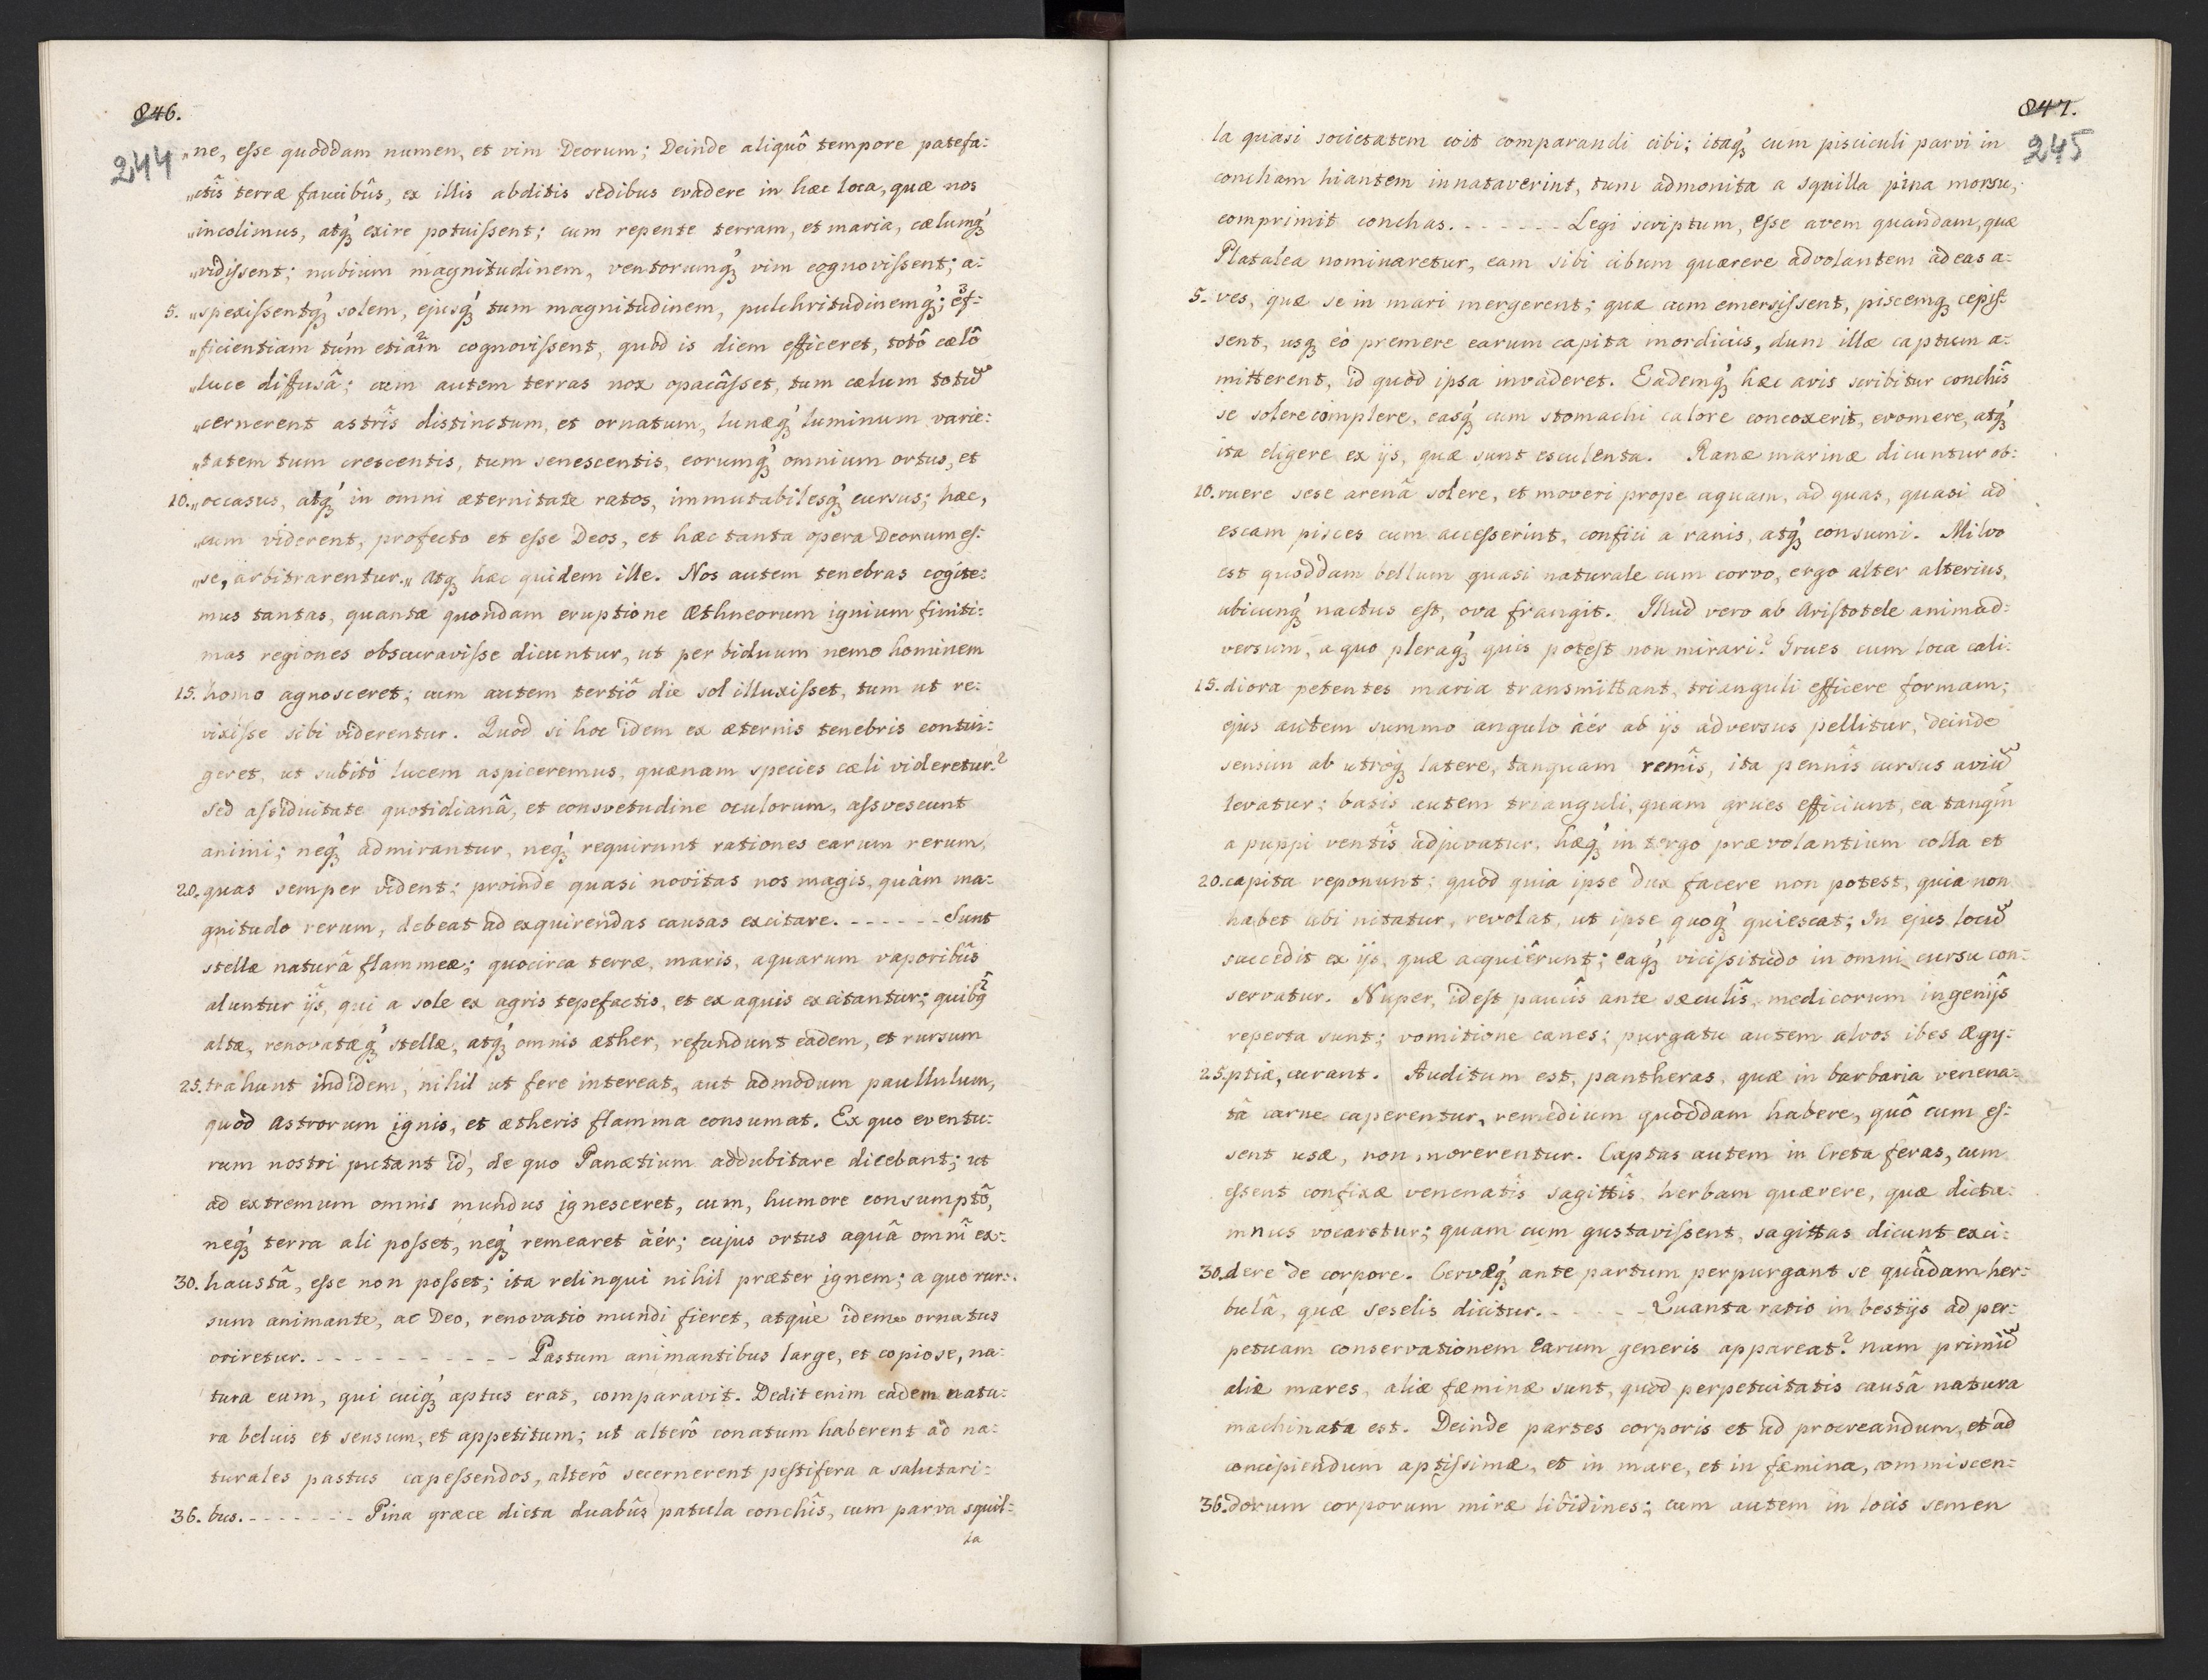 846.
244
„ne, esse quoddam numen, et vim Deorum; Deinde aliquô tempore patefa:
„ctîs terræ faucibûs, ex illis abditis sedibus evadere in hæc loca, quæ nos
„incolimus, atq́ exire potuissent; cum repente terram, et maria, cælumq́
„vidissent; nubium magnitudinem, ventorumq́ vim cognovissent; a:
5. „spexissentq́ solem, ejusq́ tum magnitudinem, pulchritudinemq́; ef:
„ficientiam túm etiam cognovissent, quòd is diem efficeret, totô cælô
„luce diffusâ; cum autem terras nox opacâsset, tum cælum totū
„cernerent astrîs distinctum, et ornatum, lunæq́ luminum varie:
„tatem tum crescentis, tum senescentis, eorumq́ omnium ortus, et
10. „occasus, atq́ in omni æternitate ratos, immutabilesq́ cursus; hæc,
„cum viderent, profecto et esse Deos, et hæc tanta opera Deorum es:
„se, arbitrarentur.„ Atq́ hæc quidem ille. Nos autem tenebras cogite:
mus tantas, quantæ quondam eruptione Æthneorum ignium finiti:
mas regiones obscuravisse dicuntur, ut per biduum nemo hominem
15. homo agnosceret; cum autem tertiô die sol illuxisset, tum ut re:
vixisse sibi viderentur. Quòd si hoc idem ex æternis tenebris contin:
geret, ut subitò lucem aspiceremus, quænam species cæli videretur?
Sed assiduitate quotidianâ, et consvetudine oculorum, assvescunt
animi; neq́ admirantur, neq́ requirunt rationes earum rerum,
20. quas semper vident; proinde quasi novitas nos magis, quàm ma:
gnitudo rerum, debeat ad exquirendas causas excitare. - - - - - - Sunt
stellæ naturâ flammeæ; quocirca terræ, maris, aquarum vaporibûs
aluntur ijs, qui a sole ex agris tepefactis, et ex aquis excitantur; quibq̂
altæ, renovatæq́ stellæ, atq́ omnis æther, refundunt eadem, et rursum
25. trahunt indidem, nihil ut fere intereat, aut admodum paullulum,
quòd Astrorum ignis, et ætheris flamma consumat. Ex quo eventu:
rum nostri putant id, de quo Panætium addubitare dicebant; ut
ad extremum omnis mundus ignesceret, cum, humore consumptô,
neq́ terra ali posset, neq́ remearet äér; cujus ortus aquâ omnî ex:
30. haustâ, esse non posset; ita relinqui nihil præter ignem; a quo rur:
sum animante, ac Deo, renovatio mundi fieret, atquè idem ornatus
oriretur. - - - - - - - - - - Pastum animantibus large, et copiose, na:
tura eum, qui cuiq́ aptus erat, comparavit. Dedit enim eadem natu:
ra beluis et sensum, et appetitum; ut alterô conatum haberent ad na:
turales pastus capessendos, alterô secernerent pestifera a salutari:
36. bus. - - - - - - - Pina græce dicta duabûs patula conchîs, cum parva squil:
la
847.
245
la quasi societatem coit comparandi cibi; itaq́ cum pisciculi parvi in
concham hiantem innataverint, tum admonita a squilla pina morsu,
comprimit conchas. - - - - - - Legi scriptum, esse avem quandam, quæ
Platalea nominaretur, eam sibi cibum quærere advolantem ad eas a:
5. ves, quæ se in mari mergerent; quæ cum emersissent, piscemq́ cepis:
sent, usq́ eò premere earum capita mordicùs, dum illæ captum a:
mitterent, id quod ipsa invaderet. Eademq́ hæc avis scribitur conchîs
se solere complere, easq́ cum stomachi calore concoxerit, evomere, atq́
ita eligere ex ijs, quæ sunt esculenta. Ranæ marinæ dicuntur ob:
10. ruere sese arenâ solere, et moveri prope aquam, ad quas, quasi ad
escam pisces cum accesserint, confici a ranis, atq́ consumi. Milvo
est quoddam bellum quasi naturale cum corvo, ergo alter alterius,
ubicunq́ nactus est, ova frangit. Illud vero ab Aristotele animad:
versum, a quo pleraq́ quis potest non mirari? Grues cum loca cali:
15. diora petentes maria transmittant, trianguli efficere formam;
ejus autem summo angulo äér ab ijs adversus pellitur, deinde
sensim ab utroq́ latere, tanquam remîs, ita pennîs cursus aviū
levatur; basis autem trianguli, quam grues efficiunt, ea tanqm̃
a puppi ventîs adjuvatur, hæq́ in tergo prævolantium colla et
20. capita reponunt; quod quia ipse dux facere non potest, quia non
habet ubi nitatur, revolat, ut ipse quoq́ quiescat; In ejus locū
succedit ex ijs, quæ acquiêrunt; eaq́ vicissitudo in omni cursu con:
servatur. Nuper, idest paucîs ante sæculîs, medicorum ingenijs
reperta sunt; vomitione canes; purgatu autem alvos ibes Ægy:
25. ptiæ, curant. Auditum est, pantheras, quæ in barbaria venena:
tâ carne caperentur, remedium quoddam habere, quô cum es:
sent usæ, non morerentur. Captas autem in Creta feras, cum
essent confixæ venenatîs sagittîs, herbam quærere, quæ dicta:
mnus vocaretur; quam cum gustavissent, sagittas dicunt exci:
30. dere de corpore. Cervæq́ ante partum perpurgant se quâdam her:
bulâ, quæ seselis dicitur. - - - - - Quanta ratio in bestijs ad per:
petuam conservationem earum generis appareat? nam primū
aliæ mares, aliæ fæminæ sunt, quod perpetuitatis causâ natura
machinata est. Deinde partes corporis et ad procreandum, et ad
concipiendum aptissimæ, et in mare, et in fæmina, commiscen:
36. dorum corporum miræ libidines; cum autem in locis semen